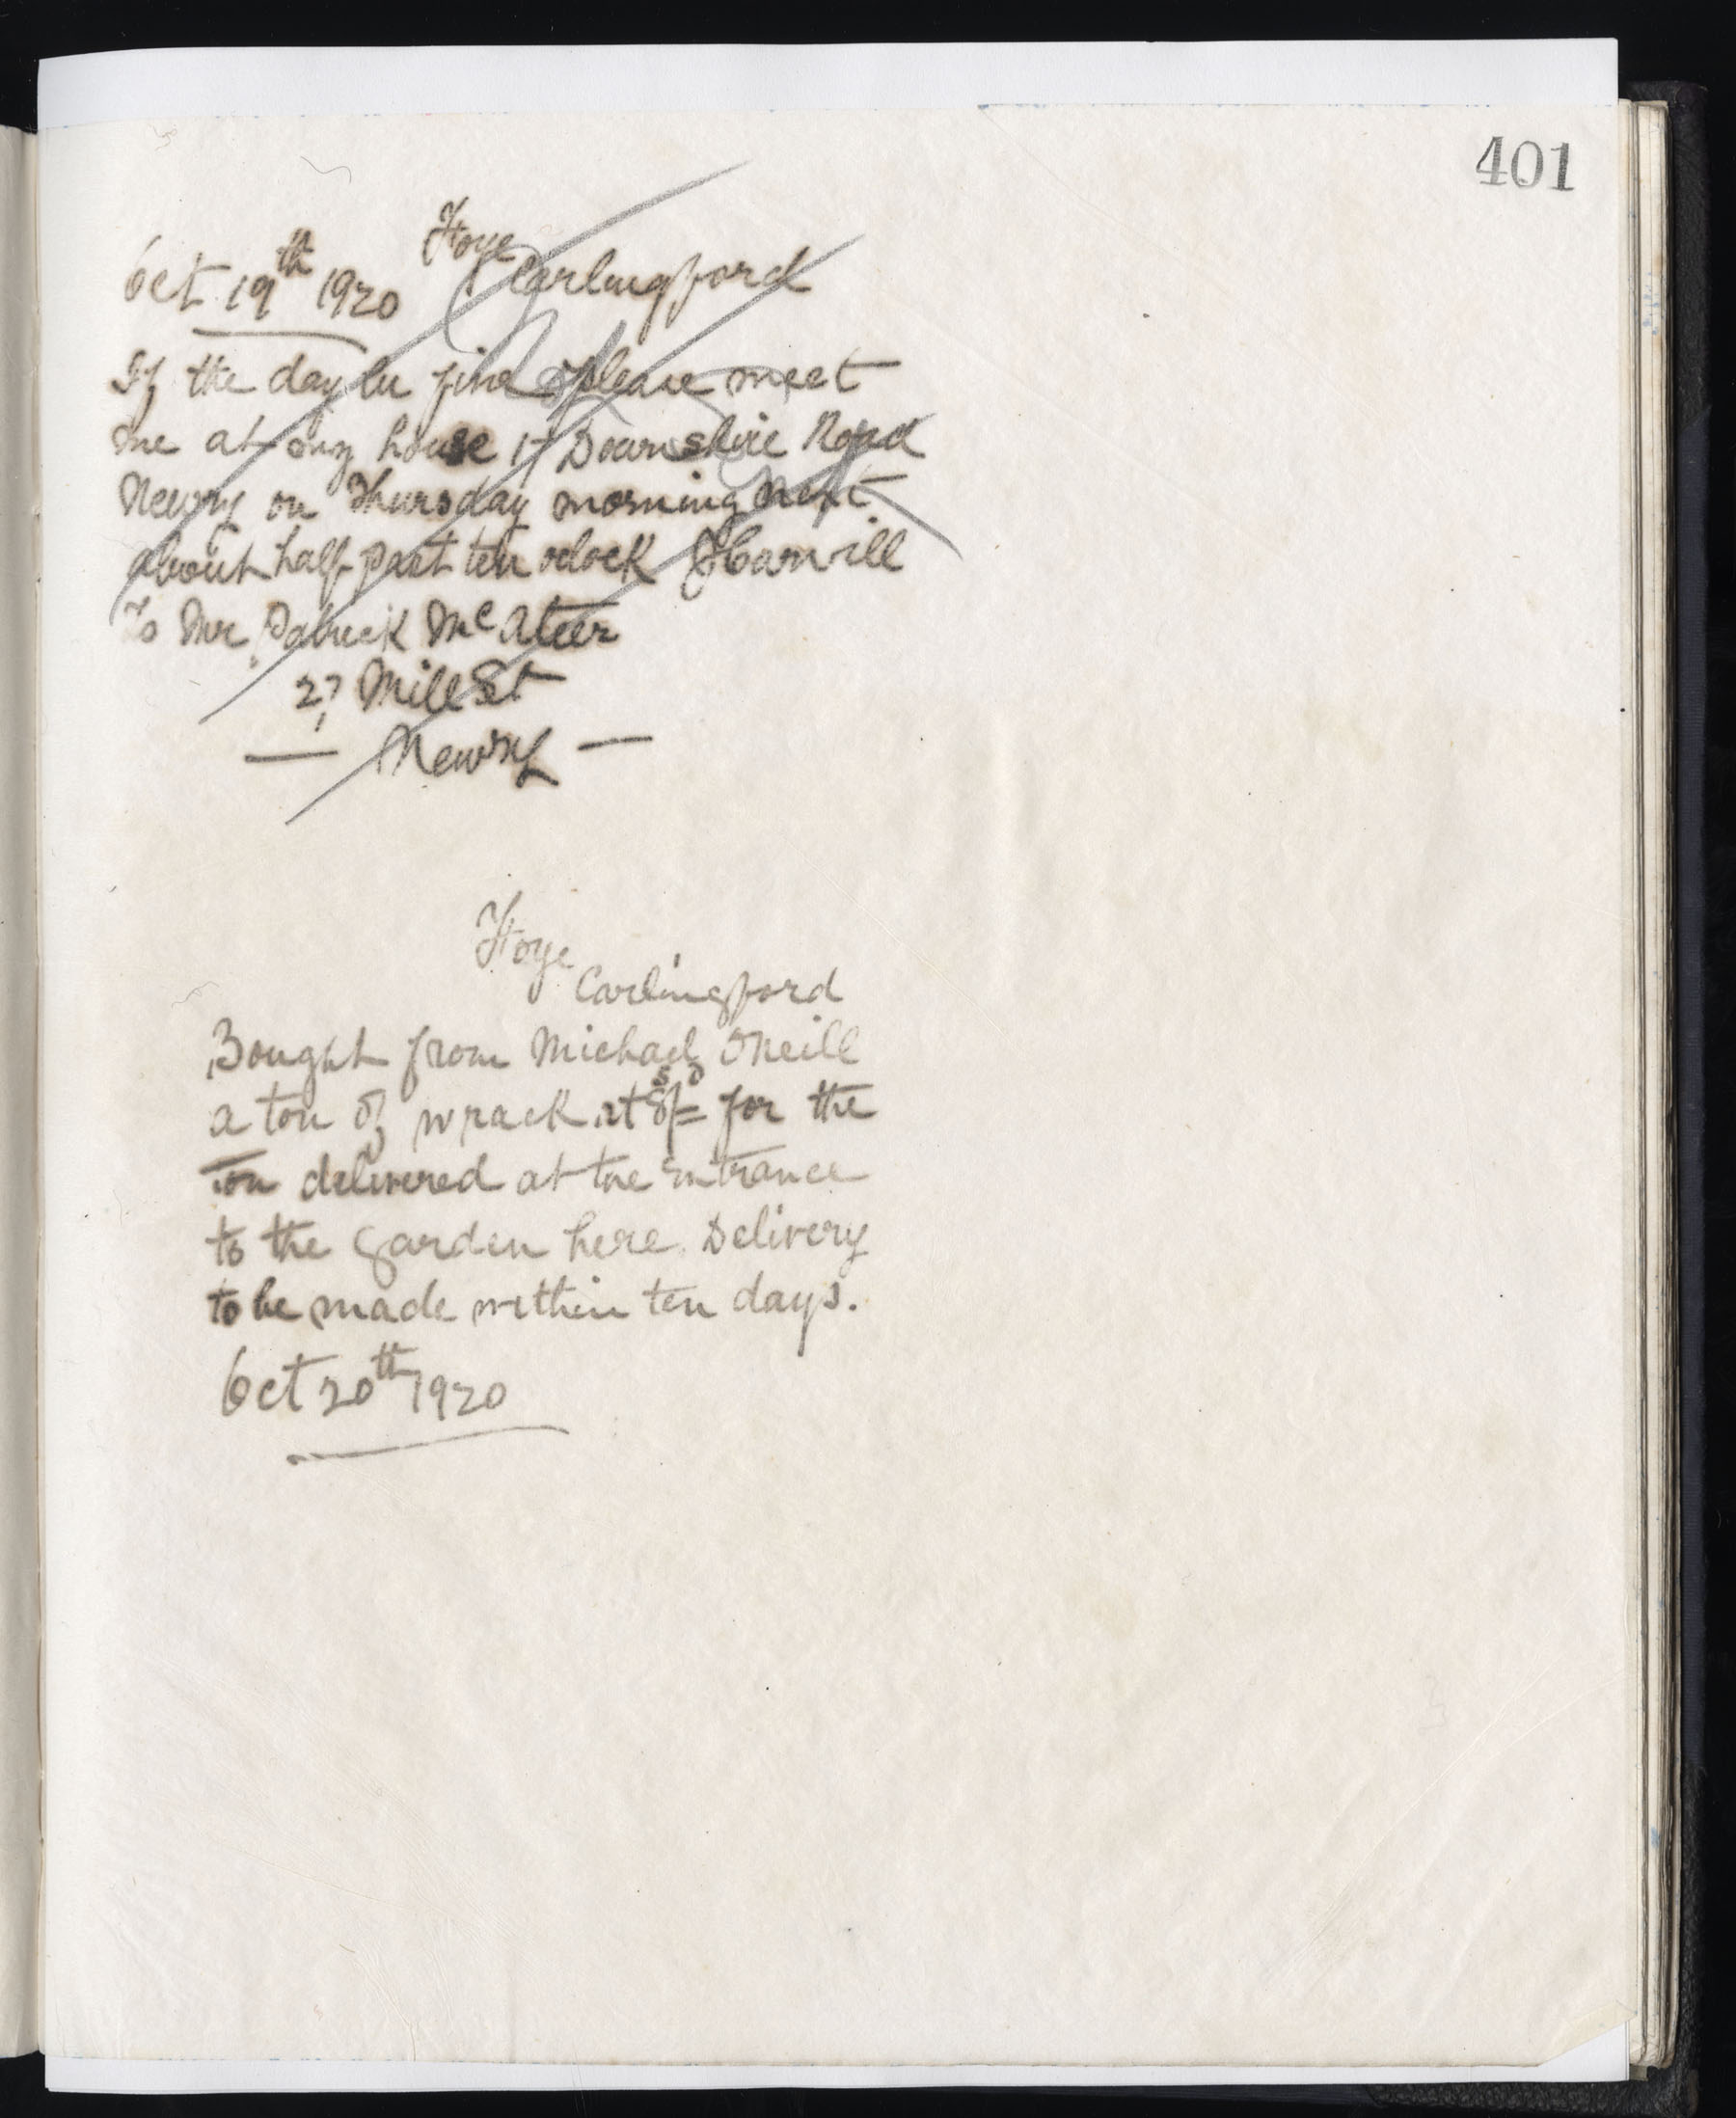 401
Foye
Oct 19th 1920 Carlingford
If the day be fine please meet
me at my house 17 Downshire Road
Newry on Thursday morning next
about half past ten oclock
To Mr. Patrick McAteer
27 Mill St
— Newry —
Foye
Carlingford
Bought from Michael ONeill
a ton of wrack at 8s/= for the
ton delivered at the entrance
to the garden here. Delivery
to be made within ten days.
Oct 20th 1920